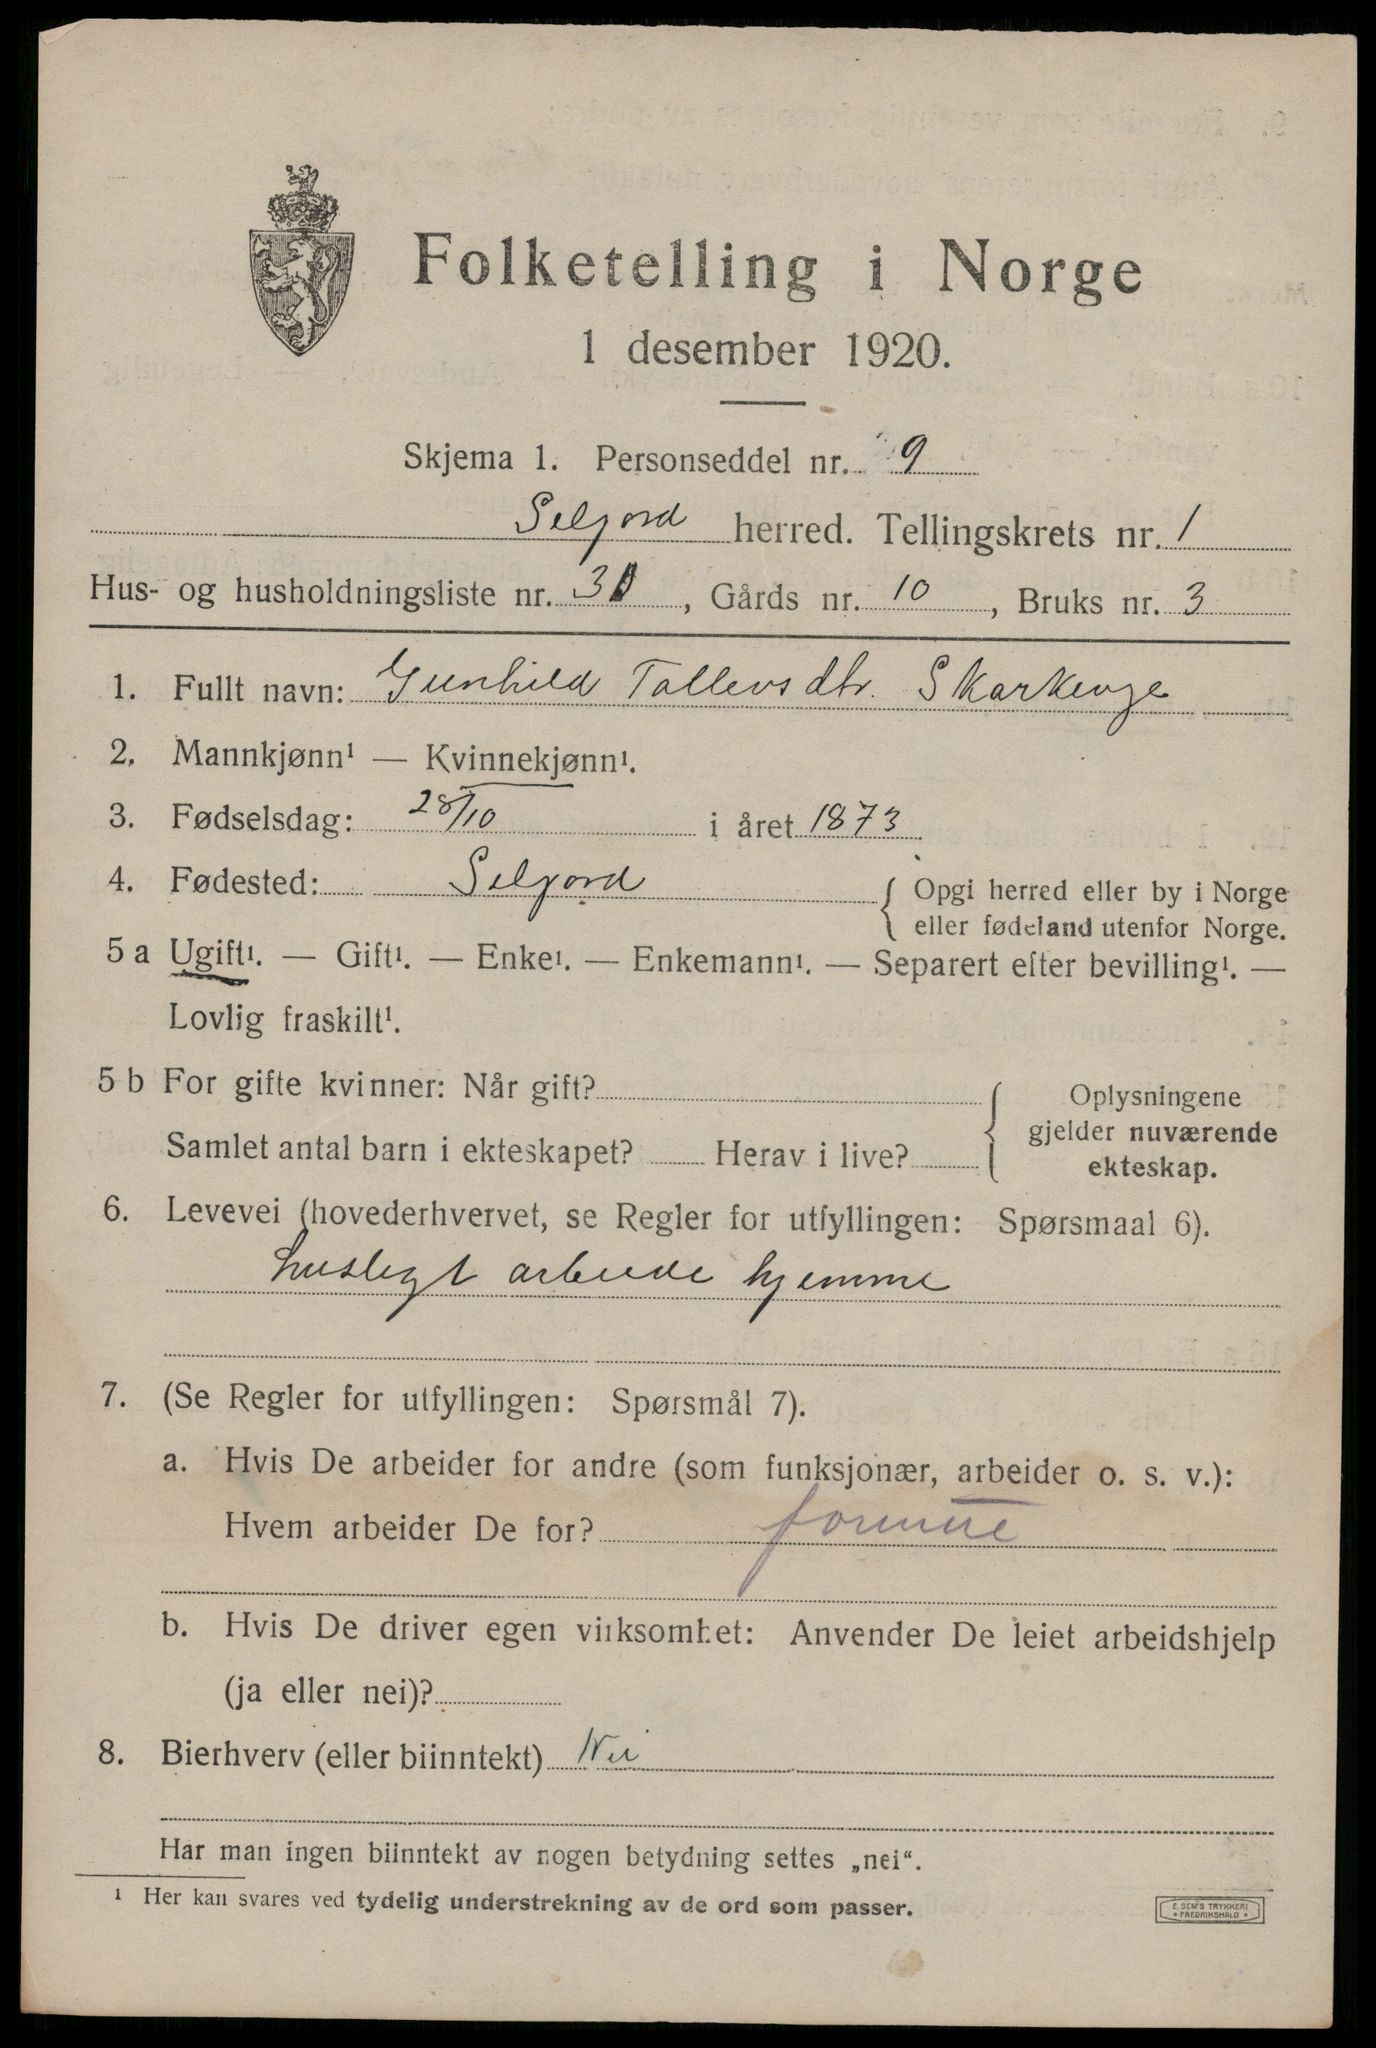 Folketelling i Norge
1 desember 1920.
Skjema 1. Personseddel nr. 9
Seljord herred. Tellingskrets nr. 1
Hus- og husholdningsliste nr. 31, Gårds nr. 10, Bruks nr. 3
1. Fullt navn: Gunhild Tollevsdtr. Skarkenge
2. Mannkjønn¹ — Kvinnekjønn¹.
3. Fødselsdag: 28/10 i året 1873
4. Fødested: Seljord { Opgi herred eller by i Norge
eller fødeland utenfor Norge.
5 a Ugift¹. — Gift¹. — Enke¹. — Enkemann¹. — Separert efter bevilling¹. —
Lovlig fraskilt¹.
5 b For gifte kvinner: Når gift? { Oplysningene
gjelder nuværende
ekteskap.
Samlet antal barn i ekteskapet? Herav i live?
6. Levevei (hovederhvervet, se Regler for utfyllingen: Spørsmaal 6).
huslegt arbeide hjemme
7. (Se Regler for utfyllingen: Spørsmål 7).
a. Hvis De arbeider for andre (som funksjonær, arbeider o. s. v.):
Hvem arbeider De for?
b. Hvis De driver egen virksomhet: Anvender De leiet arbeidshjelp
(ja eller nei)?
8. Bierhverv (eller biinntekt) Nei
Har man ingen biinntekt av nogen betydning settes „nei“.
¹ Her kan svares ved tydelig understrekning av de ord som passer.
E. SEM'S TRYKKERI
* FREDRIKSHALD *